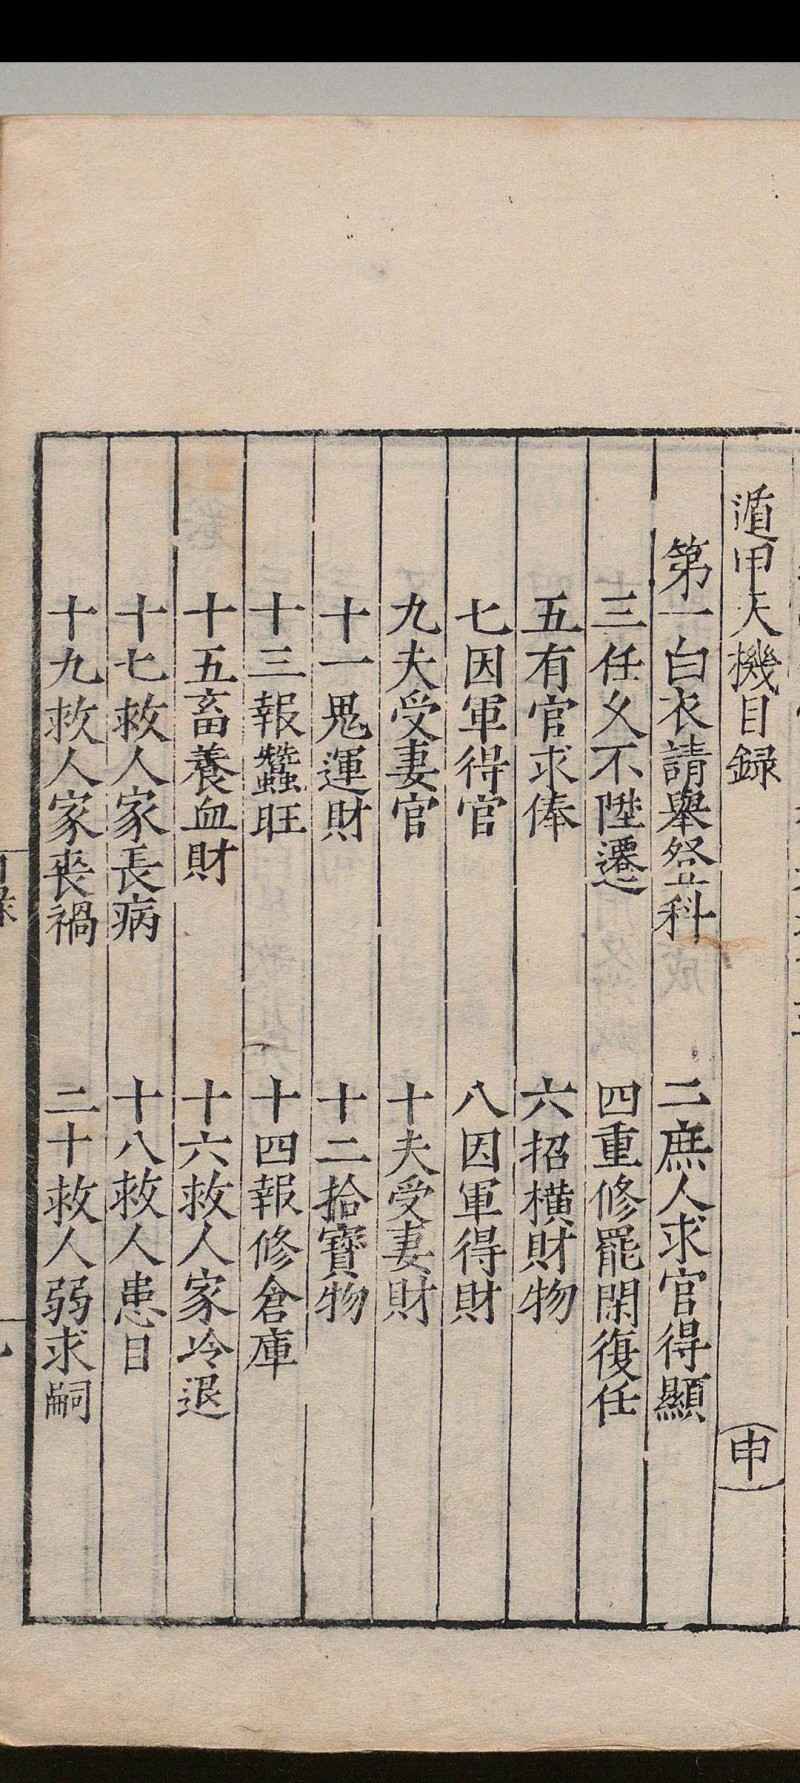 遁甲天機目録 申
第一白衣請舉登科 二庶人求官得顯
三任久不陞遷 四重修罷閑復任
五有官求俸 六招橫財物
七因軍得官 八因軍得財
九夫受妻官 十夫受妻財
十一鬼運財 十二拾寶物
十三報蠶旺 十四報修倉庫
十五畜養血財 十六救人家冷退
十七救人家長病 十八救人患目
十九救人家喪禍 二十救人弱求嗣